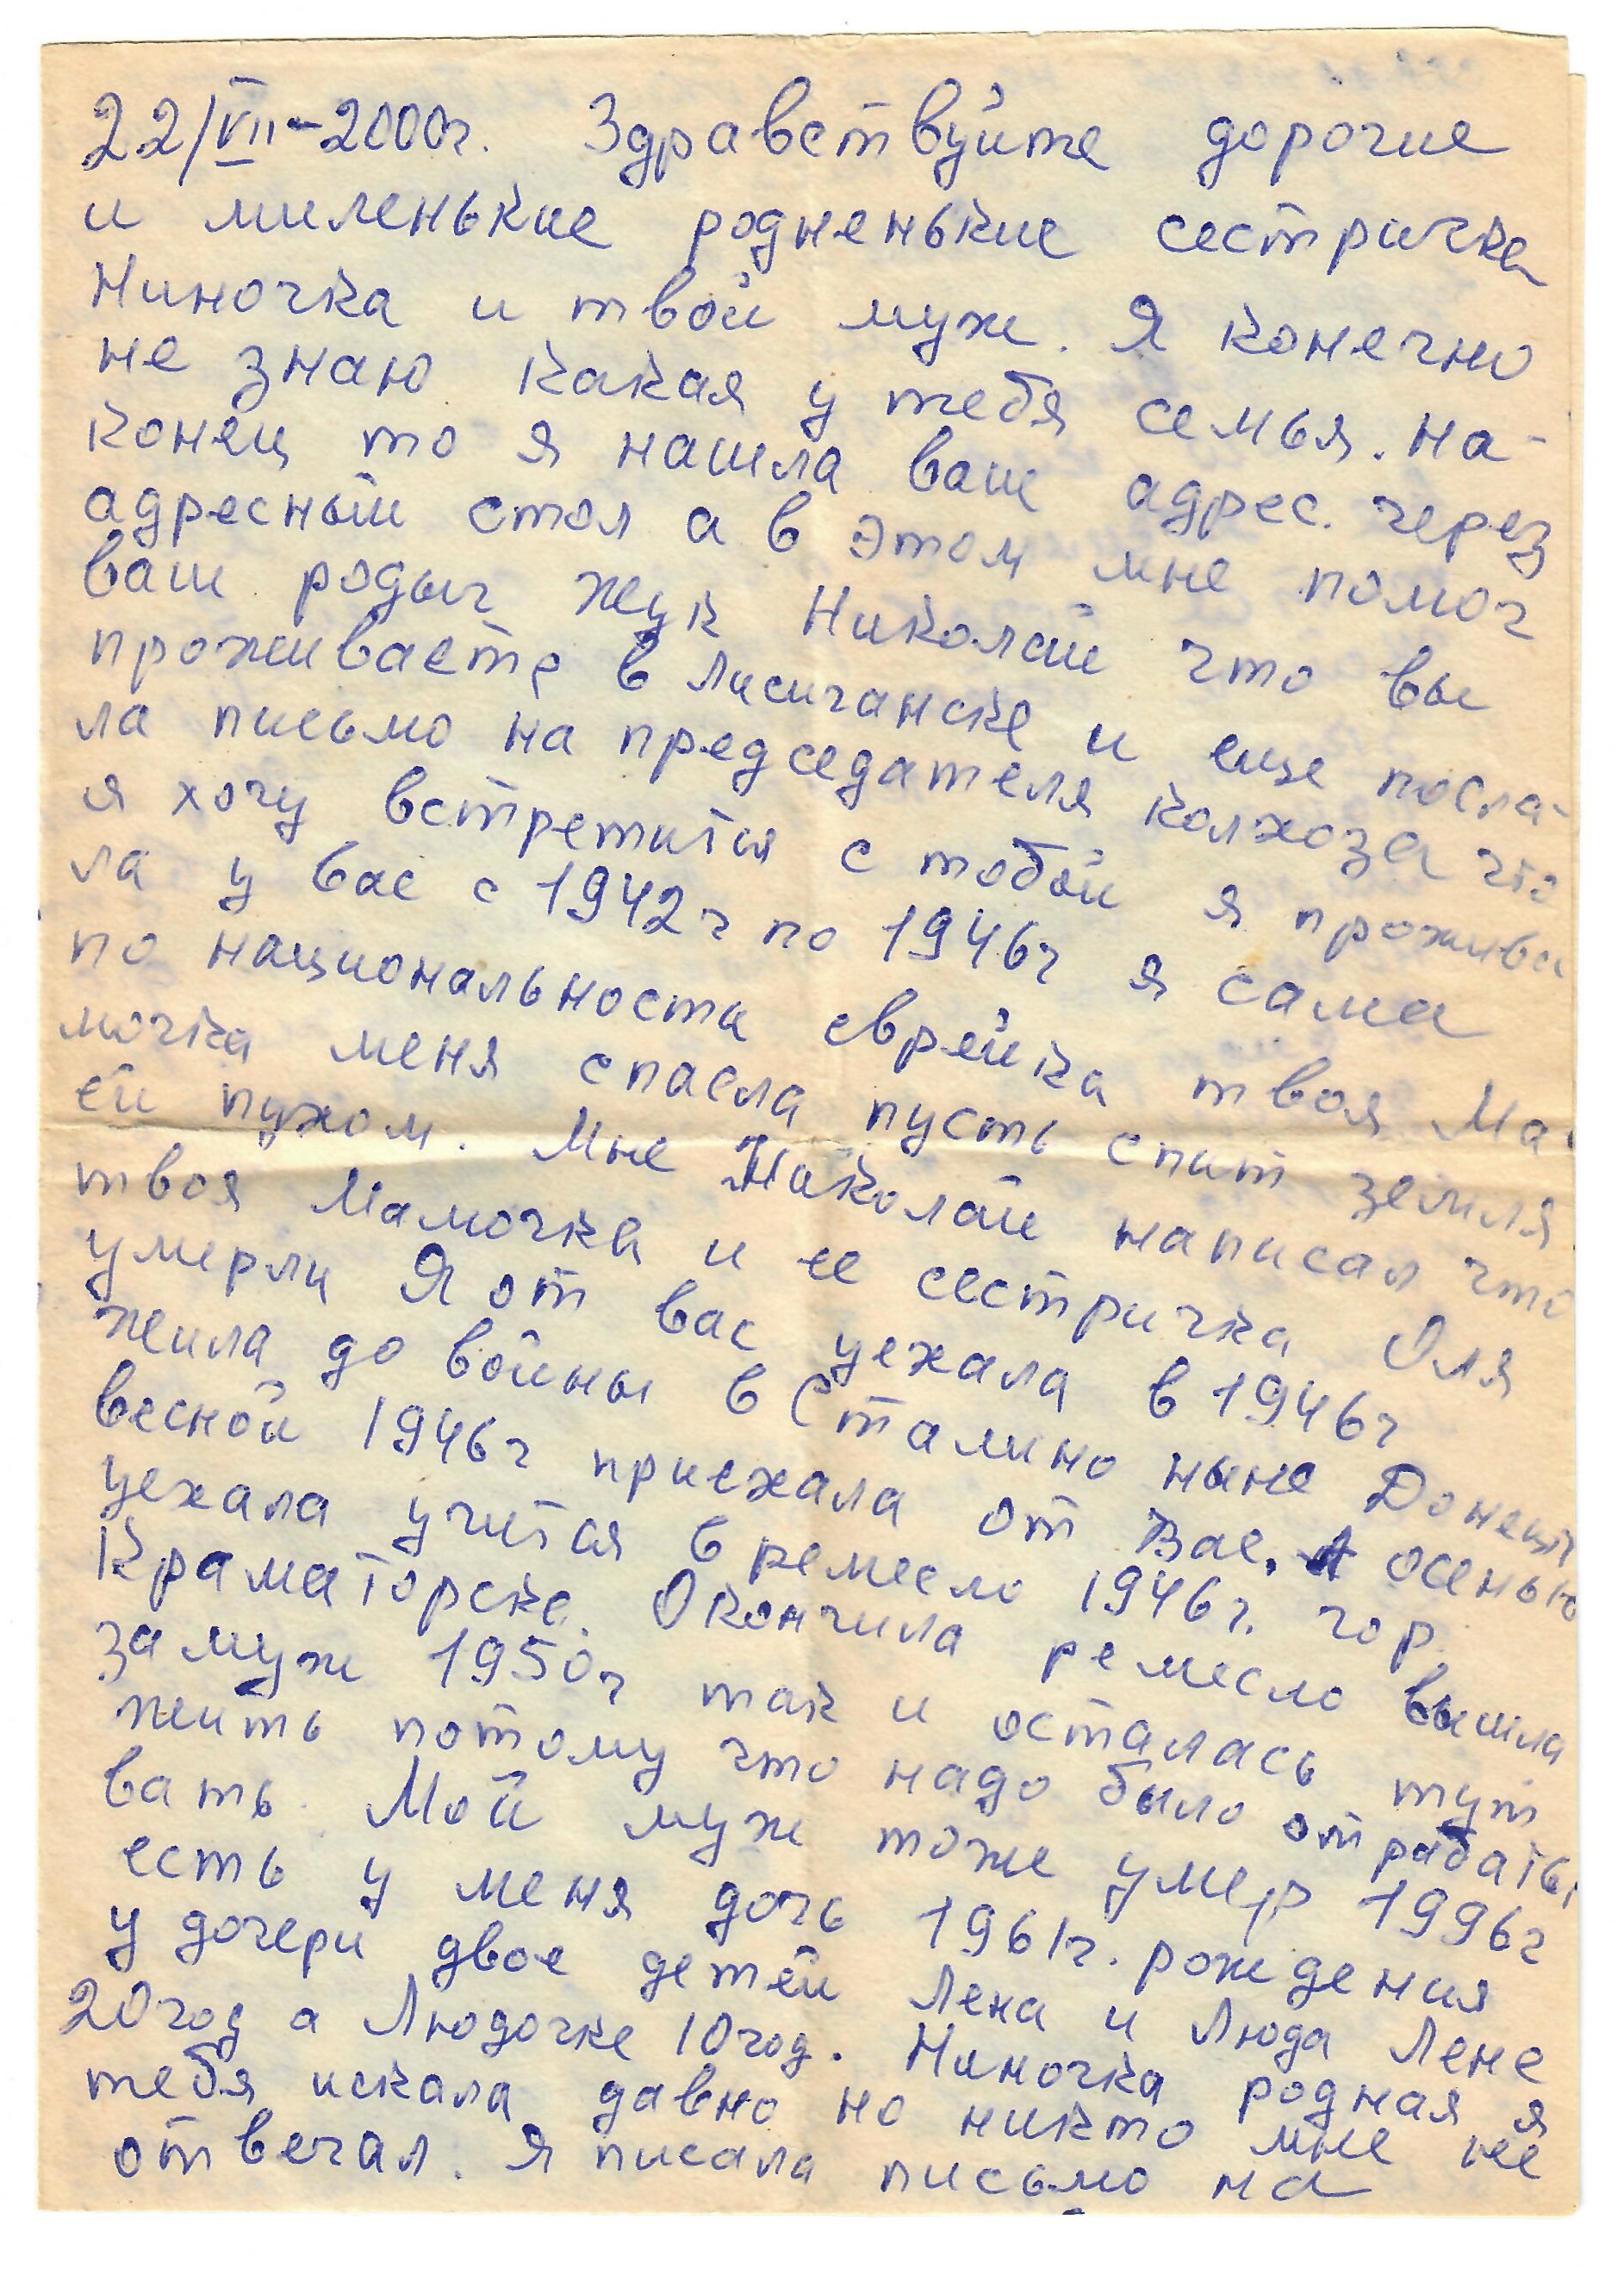 22/VII-2000г. Здравствуйте дорогие
и миленькие родненькие сестричка
Ниночка и твой муж. Я конечно
не знаю какая у тебя семья. На-
конец то я нашла ваш адрес. через
адресный стол а в этом мне помог
ваш родыч Жук Николай что вы
проживаете в Лисичанске и еще посла-
ла письмо на председателя колхоза что
я хочу встретится с тобой я прожива
ла у вас с 1942г по 1946г я сама
по национальности еврейка твоя Ма-
мочка меня спасла пусть спит земля
ей пухом. Мне Николай написал что
твоя Мамочка и ее сестричка Оля
умерли Я от вас уехала в 1946г
жила до войны в Сталино ныне Донецк
весной 1946г приехала от Вас. А осенью
уехала учится в ремесло 1946г. гор.
Краматорске. Окончила ремесло вышла
замуж 1950г так и осталась тут
жить потому что надо было отрабаты
вать. Мой муж тоже умер 1996г
есть у меня дочь 1961г. рождения
у дочери двое детей Лена и Люда Лене
20год а Людочке 10год. Ниночка родная я
тебя искала давно но никто мне не
отвечал. Я писала письмо на